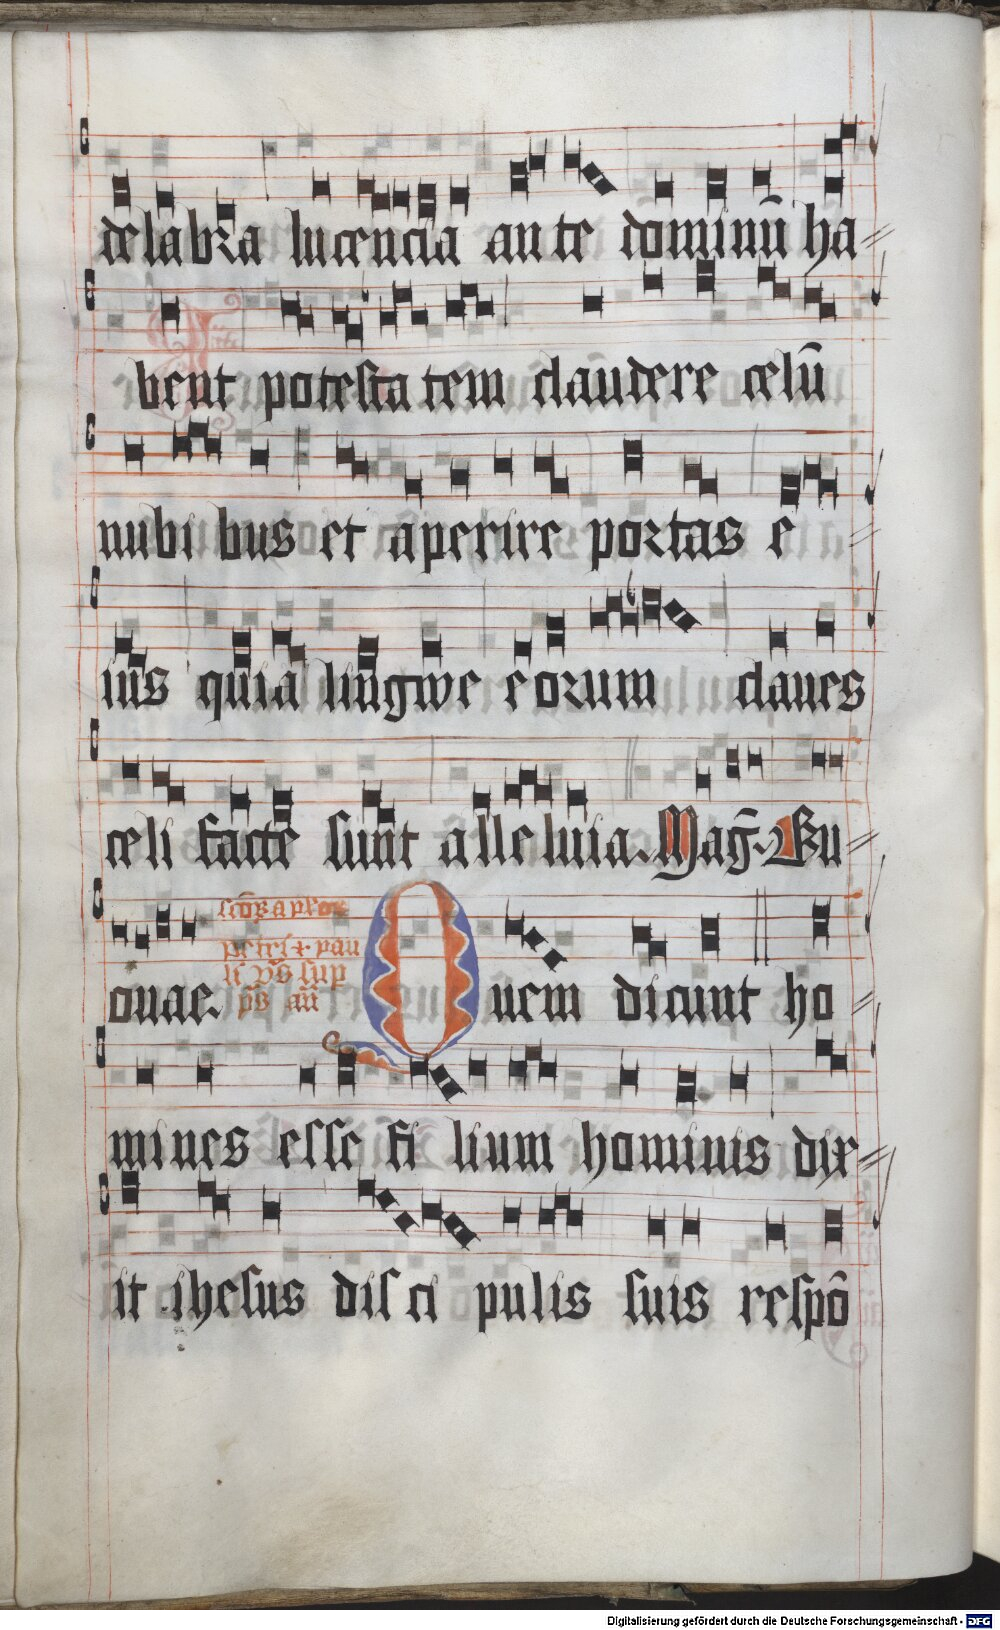 delabra lucencia ante dominū ha
bent potestatem claudere celū
nubibus et aperire portas e
ius quia lingwe eorum claues
celi facte sunt alleluia. Mag̃. Eu
ouae.
petri et pau
li
Quem dicunt ho
mines esse filium hominis dix
it ihesus discipulis suis respō
Digitalisierung gefördert durch die Deutsche Forschungsgemeinschaft - DFG